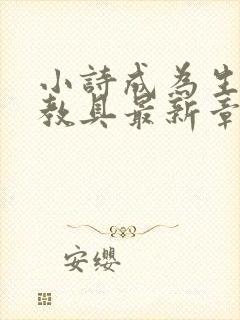 小詩成為生
教具最新章
安纓